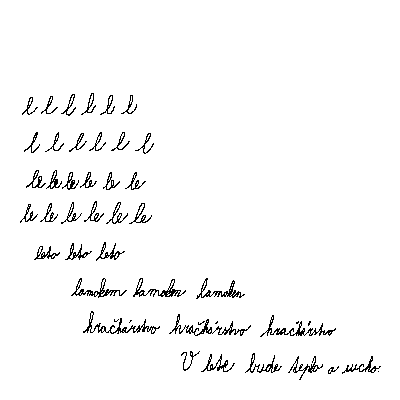 l l l l l l
l l l l l l
le le le le le le
le le le le le le
leto leto leto
hračkárstvo hračkárstvo hračkárstvo
V lete bude teplo a sucho.